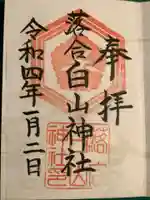 奉拝
落合白山神社
令和四年一月二日